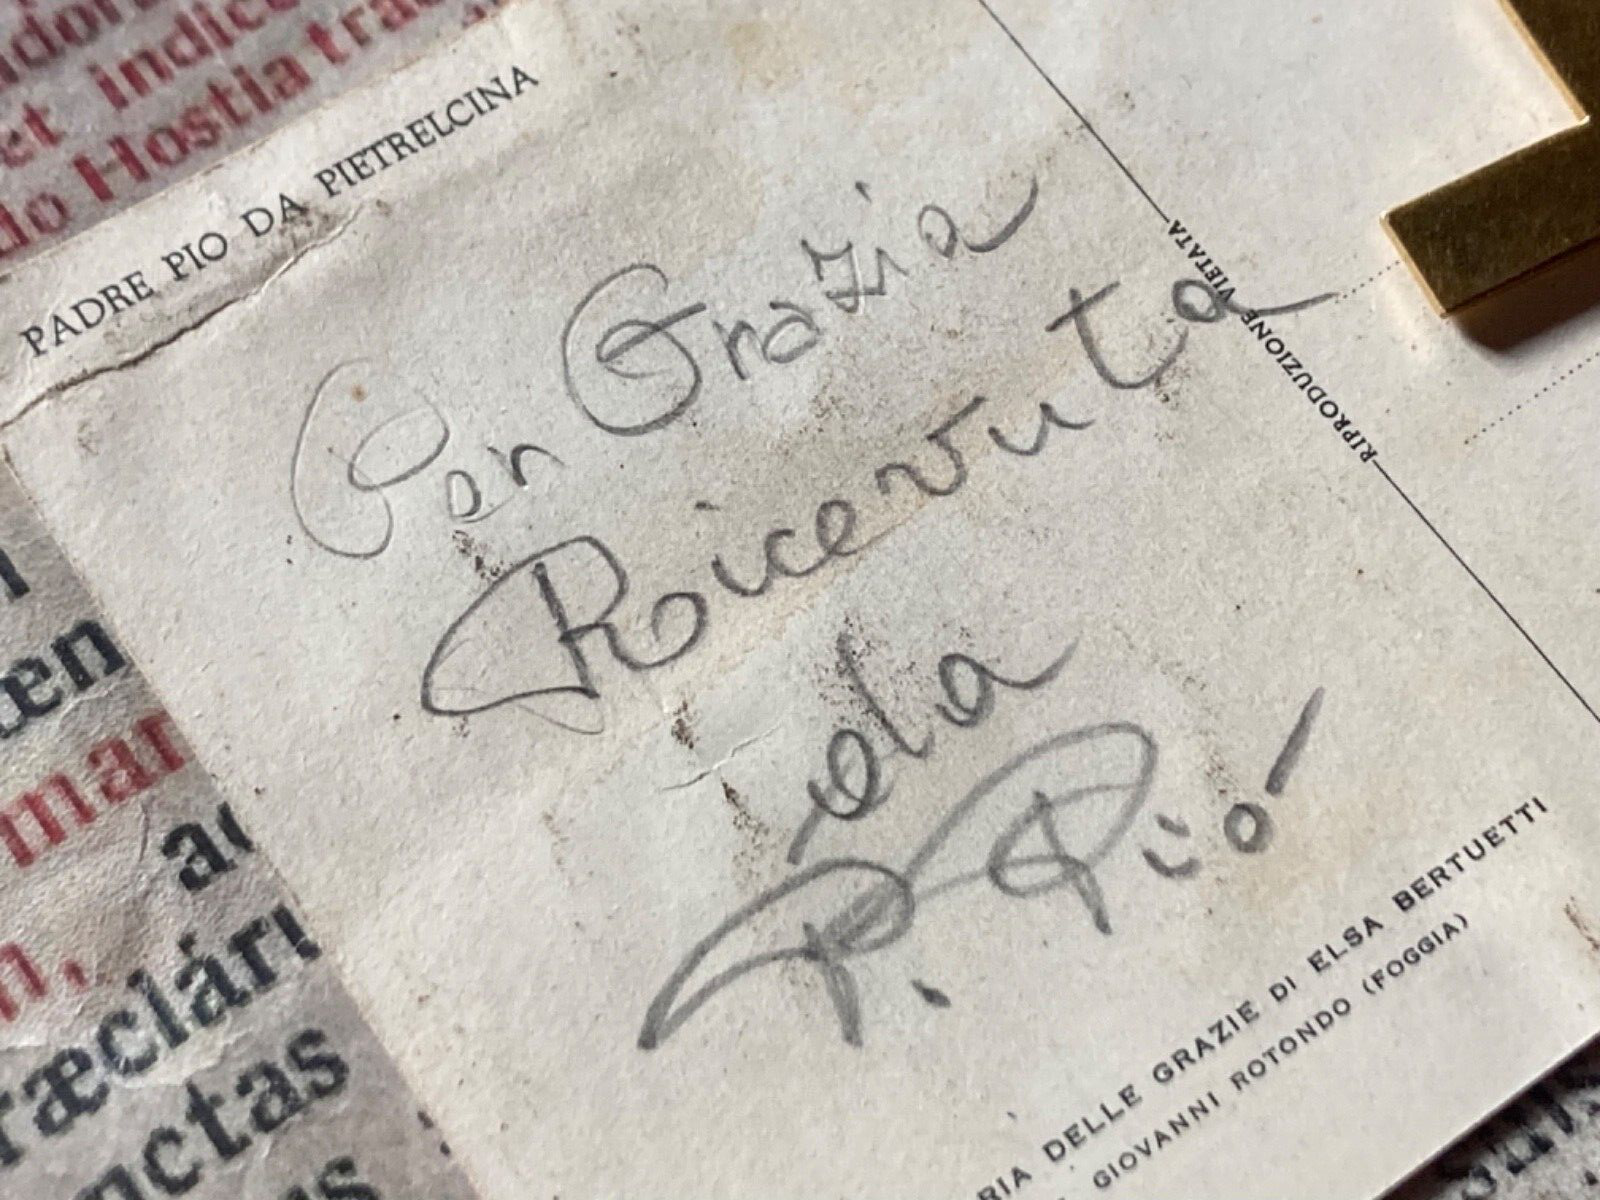 ndor
et indic
do Hostia tra
PADRE PIO DA PIETRELCINA
Per Grazia
Ricevuta
da
P. Pio
VIETATA
RIPRODUZIONE
RIA DELLE GRAZIE DI ELSA BERTUETTI
GIOVANNI ROTONDO (FOGGIA)
æn
mar
n,
ræclári
nctas